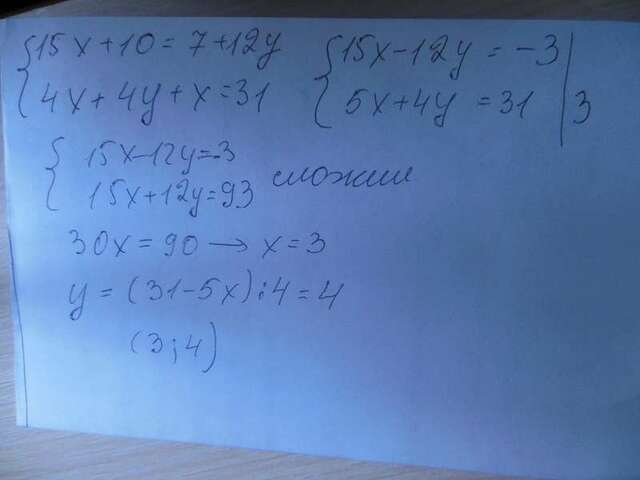 15x+10=7+12y
4x+4y+x=31
15x-12y=-3
5x+4y=31 | 3
15x-12y=-3
15x+12y=93 сложим
30x=90→x=3
y=(31-5x):4=4
(3;4)